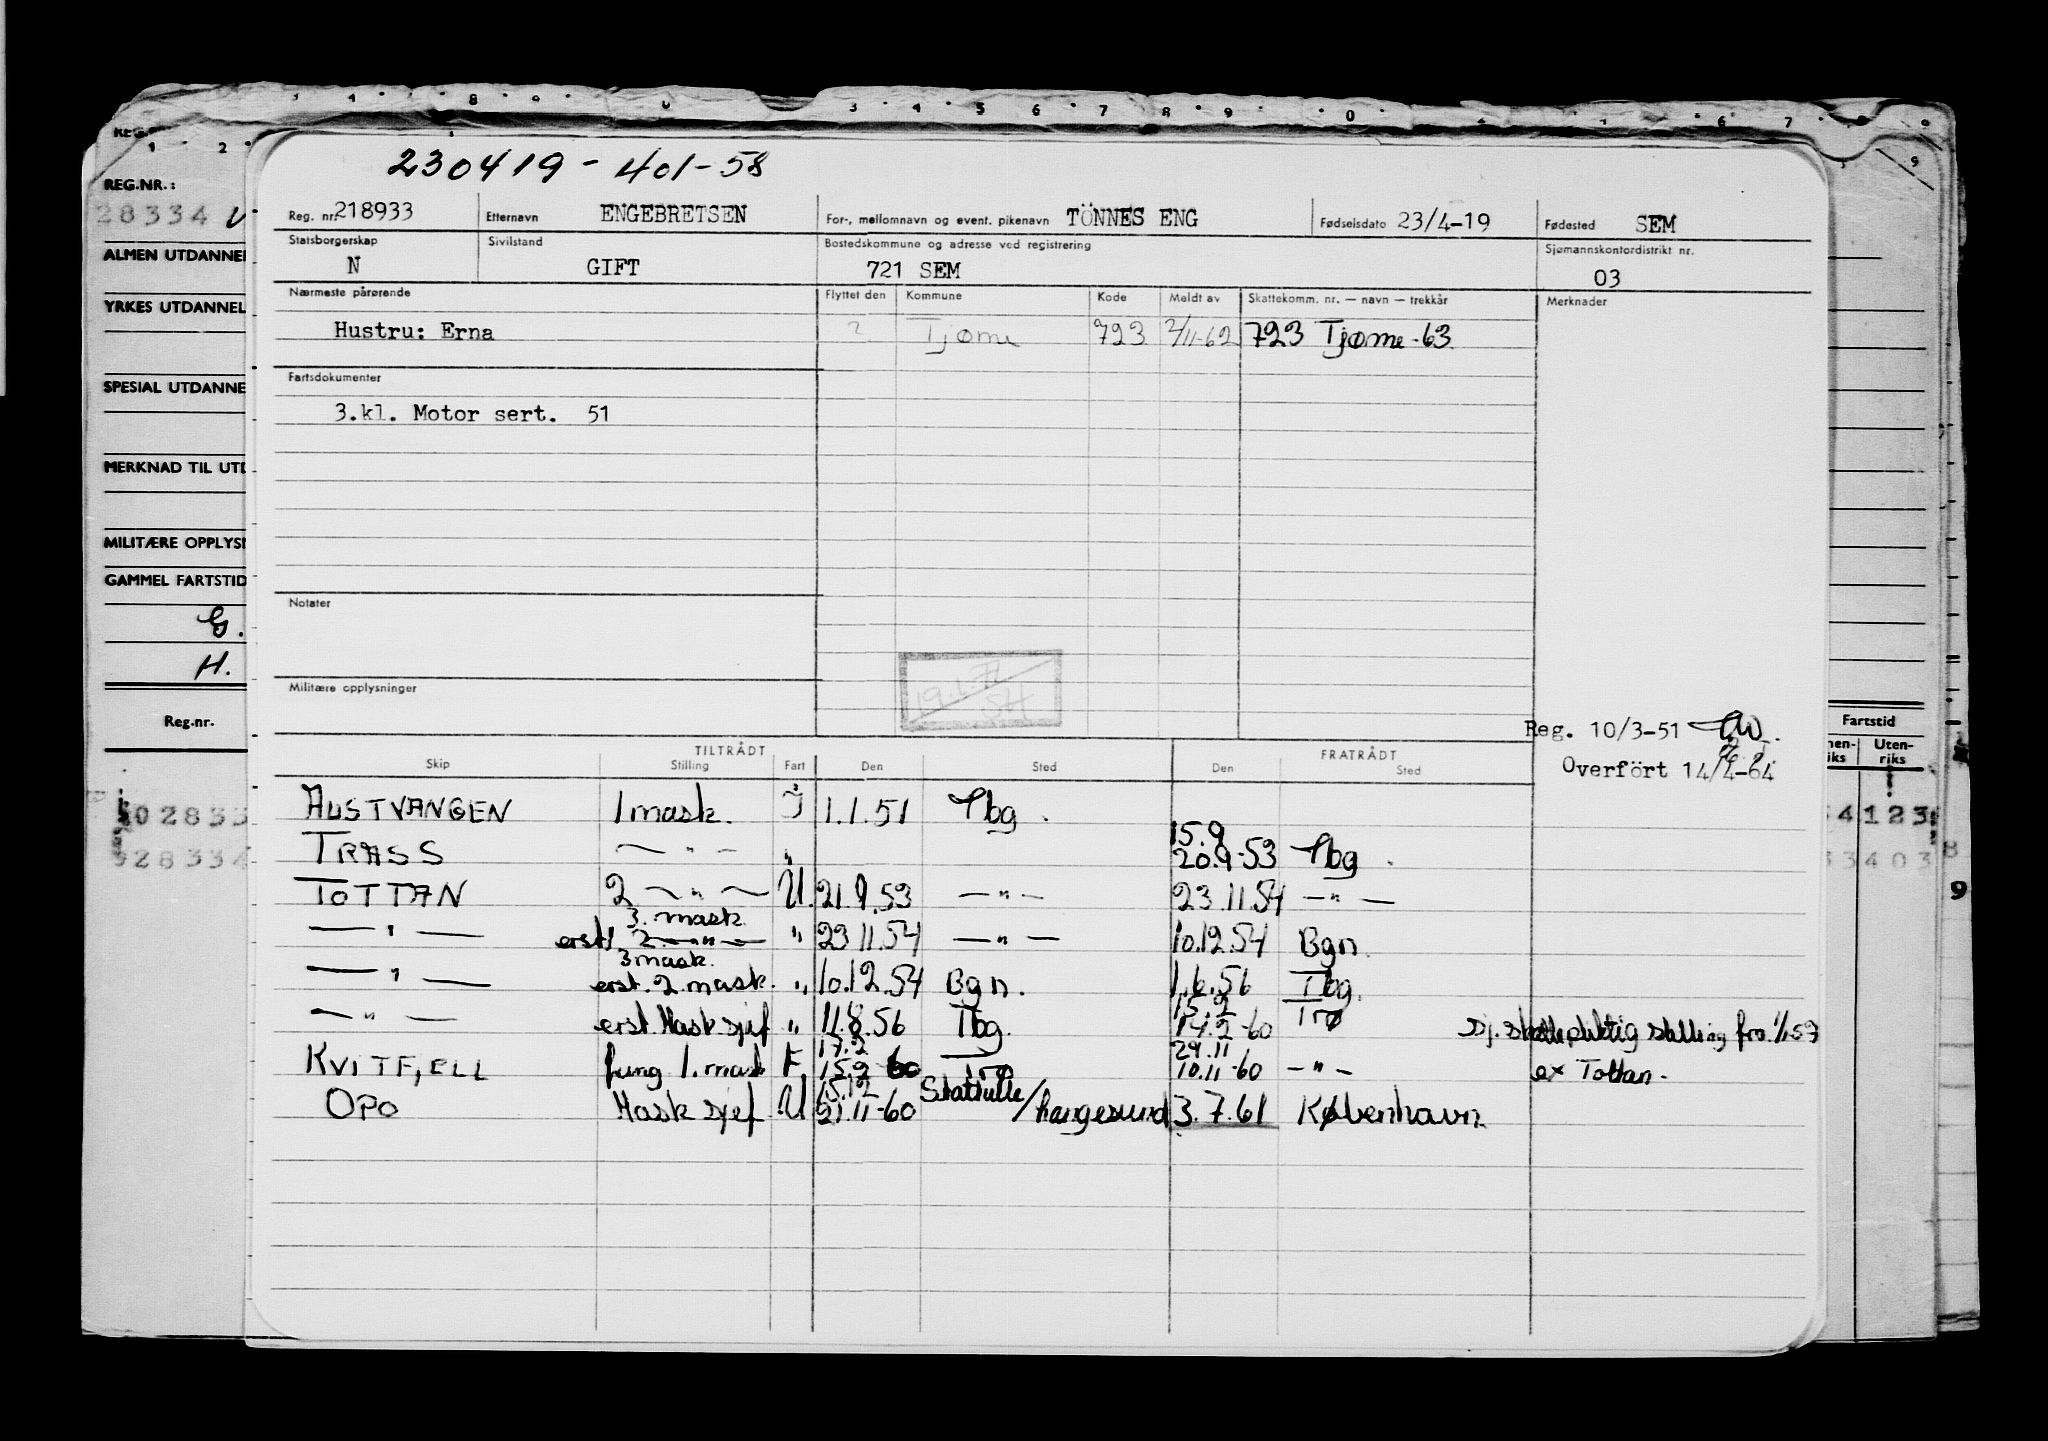 230419 - 401-58
REG.NR.:
28334
Reg. nr. 218933 Etternavn ENGEBRETSEN For-, mellomnavn og event. pikenavn TÖNNES ENG Fødselsdato 23/4-19 Fødested SEM
Statsborgerskap Sivilstand Bostedskommune og adresse ved registrering Sjømannskontordistrikt nr.
N GIFT 721 SEM 03
ALMEN UTDANNEL
YRKES UTDANNEL
Nærmeste pårørende Flyttet den Kommune Kode Meldt av Skattekomm. nr. — navn — trekkår Merknader
Hustru: Erna ? Tjøme 723 2/11-62 723 Tjøme-63
SPESIAL UTDANNE
Fartsdokumenter
3.kl. Motor sert. 51
MERKNAD TIL UTD
MILITÆRE OPPLYSN
GAMMEL FARTSTID
Notater
G.
H.
Militære opplysninger
19.1.77
SH
Reg.nr.
Reg. 10/3-51
Overfört 14/4-64
Fartstid
Uten-
riks
TILTRÅDT FRATRÅDT
Skip Stilling Fart Den Sted Den Sted
AUSTVANGEN 1 mask. I 1.1.51 Tbg.
15.9
TRASS — " — " 20.9-53 Tbg.
TOTTAN 2 — " — U. 21.9.53 — " — 23.11.54 — " —
3. mask
— " — erst. 2 — " — " 23 11.54 — " — 10.12.54 Bgn.
3 mask.
— " — erst. 2. mask. " 10.12.54 Bgn. 1.6.56 Tbg.
15.2
— " — erst Mask sjef " 11.8.56 Tbg. 14.2-60 Trø
17.2 29.11
KVITFJELL fung 1. mask F 15.2 60 Trø 10.11-60 — " — ex Tottan.
15.12
OPO Mask sjef U 21.11-60 /haugesund 3.7.61 København